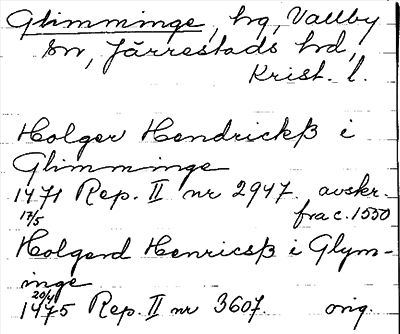 Glimminge, hg, Vallby
sn, Järrestads hd,
Krist. l.
Holger Hendrickß i
Glimminge
1471 Rep. II nr 2947. avskr.
17/5 fra c. 1550
Holgerd Henricsß i Glym-
inge
20/4
1475 Rep. II nr 3607. orig.